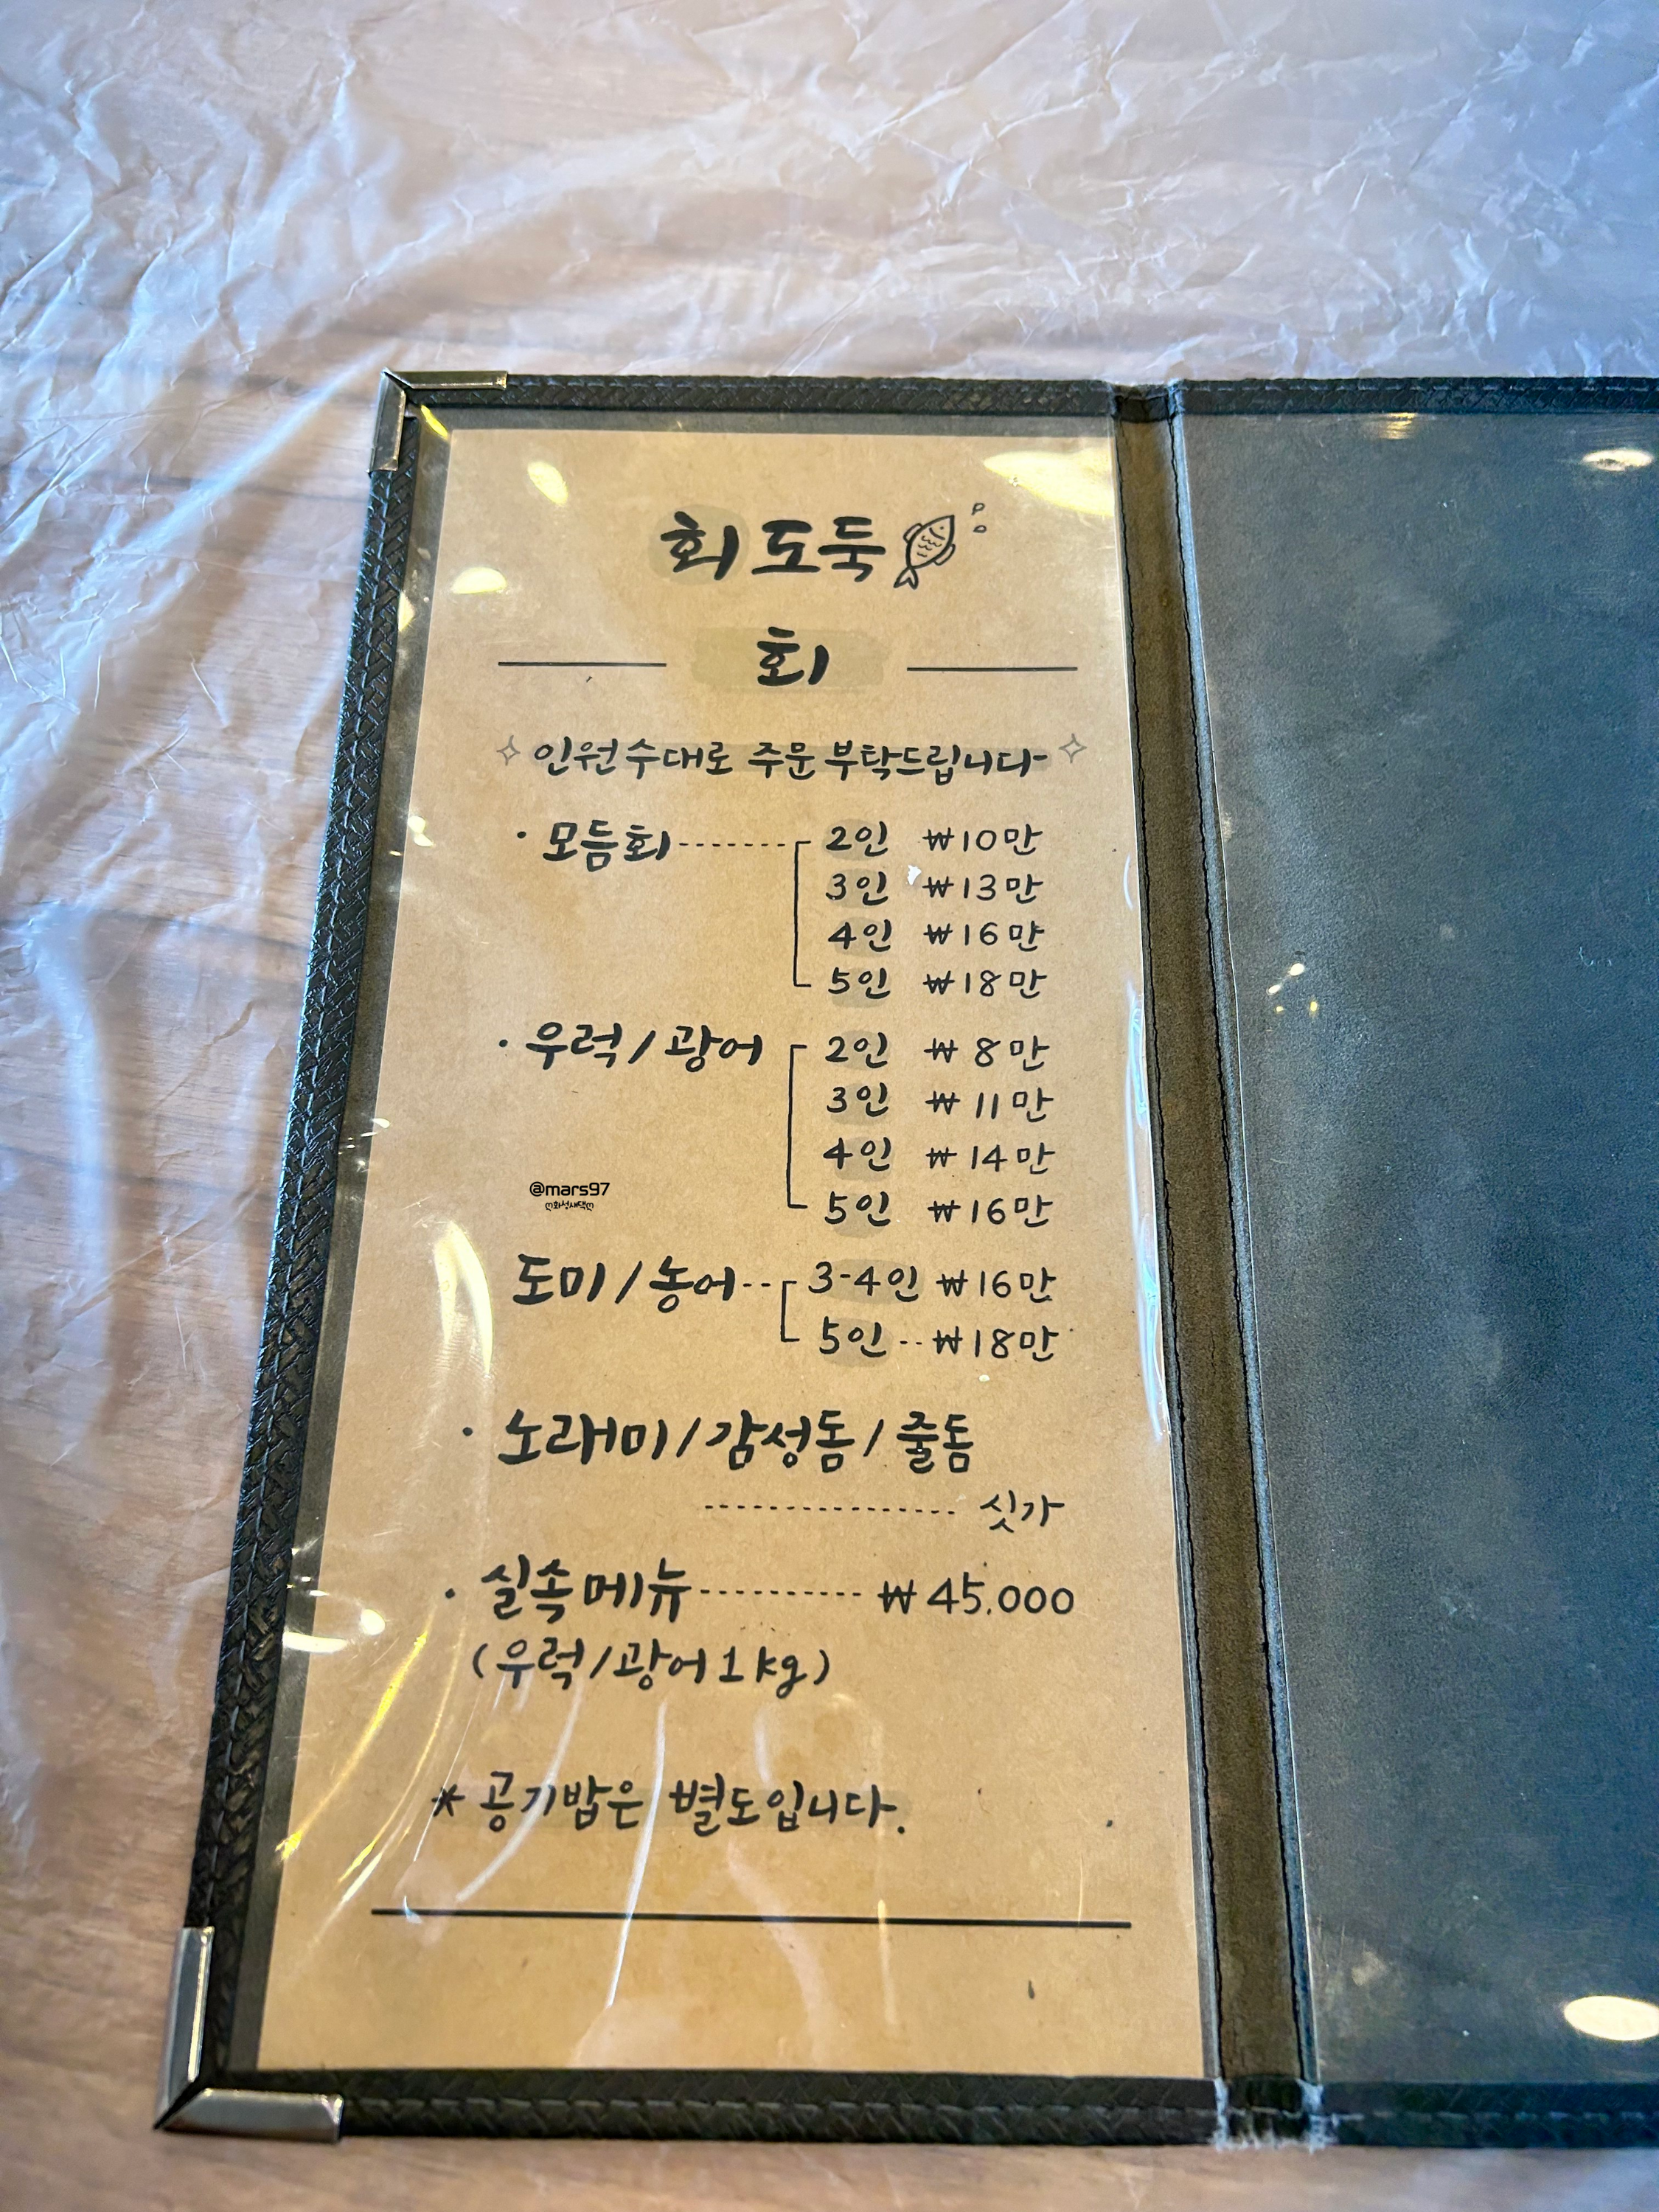 회 도둑
회
인원수대로 주문 부탁드립니다
· 모듬회 ------- 2인 ₩10만
3인 ₩13만
4인 ₩16만
5인 ₩18만
· 우럭/광어 2인 ₩8만
3인 ₩11만
4인 ₩14만
5인 ₩16만
@mars97
ღ화성새댁ღ
도미/농어-- 3-4인 ₩16만
5인--₩18만
· 노래미/감성돔/줄돔
---------------- 싯가
· 실속메뉴---------- ₩45.000
(우럭/광어 1kg)
* 공기밥은 별도입니다.